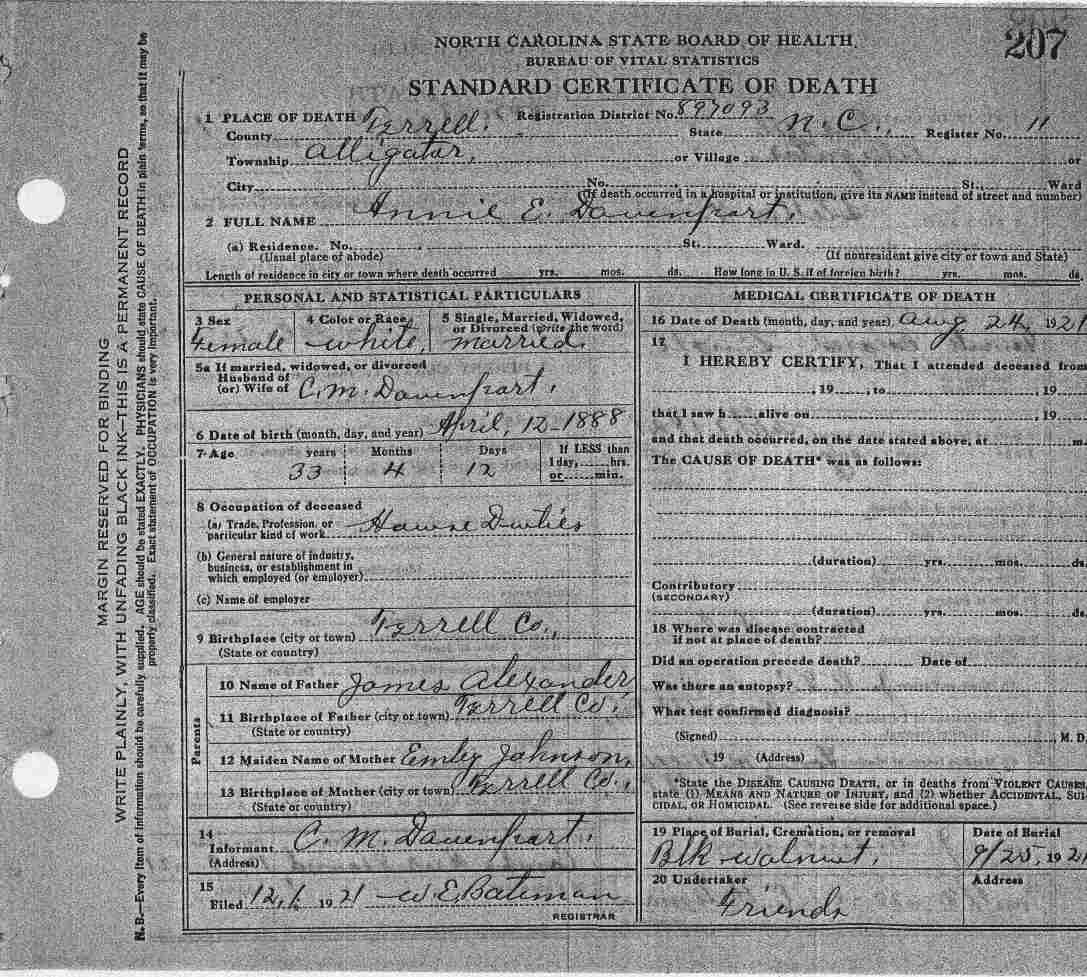 207
NORTH CAROLINA STATE BOARD OF HEALTH
BUREAU OF VITAL STATISTICS
STANDARD CERTIFICATE OF DEATH
1 PLACE OF DEATH Registration District No. 897093
County Tyrrell. State N.C., Register No. 11
Township Alligator, or Village or
City No. St., Ward
(If death occurred in a hospital or institution, give its NAME instead of street and number)
2 FULL NAME Annie E. Davenport.
(a) Residence. No. St. Ward.
(Usual place of abode) (If nonresident give city or town and State)
Length of residence in city or town where death occurred yrs. mos. ds. How long in U. S. if of foreign birth? yrs. mos. ds.
PERSONAL AND STATISTICAL PARTICULARS
3 Sex 4 Color or Race 5 Single, Married, Widowed,
or Divorced (write the word)
Female white, married.
5a If married, widowed, or divorced
Husband of
(or) Wife of C. M. Davenport.
6 Date of birth (month, day, and year) April, 12-1888
7 Age years Months Days If LESS than
1 day, hrs.
or min.
33 4 12
8 Occupation of deceased
(a) Trade, Profession, or
particular kind of work Howse Duties
(b) General nature of industry,
business, or establishment in
which employed (or employer)
(c) Name of employer
9 Birthplace (city or town) Tyrrell Co.,
(State or country)
Parents
10 Name of Father James Alexander,
11 Birthplace of Father (city or town) Tyrrell Co.,
(State or country)
12 Maiden Name of Mother Emley Johnson,
13 Birthplace of Mother (city or town) Tyrrell Co.,
(State or country)
14
Informant C. M. Davenport.
(Address)
15
Filed 12,1. 1921 W E Bateman
REGISTRAR
MEDICAL CERTIFICATE OF DEATH
16 Date of Death (month, day, and year) Aug 24, 1921
17
I HEREBY CERTIFY, That I attended deceased from
, 19 , to , 19
that I saw h alive on , 19
and that death occurred, on the date stated above, at m.
The CAUSE OF DEATH* was as follows:
(duration) yrs. mos. ds.
Contributory
(SECONDARY)
(duration) yrs. mos. ds.
18 Where was disease contracted
if not at place of death?
Did an operation precede death? Date of
Was there an autopsy?
What test confirmed diagnosis?
(Signed) , M. D.
, 19 (Address)
*State the DISEASE CAUSING DEATH, or in deaths from VIOLENT CAUSES,
state (1) MEANS AND NATURE OF INJURY, and (2) whether ACCIDENTAL, SUI-
CIDAL, OR HOMICIDAL. (See reverse side for additional space.)
19 Place of Burial, Cremation, or removal Date of Burial
Blk walnut, 9/25, 1921
20 Undertaker Address
Friends
MARGIN RESERVED FOR BINDING
WRITE PLAINLY, WITH UNFADING BLACK INK—THIS IS A PERMANENT RECORD
N. B.—Every item of information should be carefully supplied. AGE should be stated EXACTLY. PHYSICIANS should state CAUSE OF DEATH in plain terms, so that it may be
properly classified. Exact statement of OCCUPATION is very important.